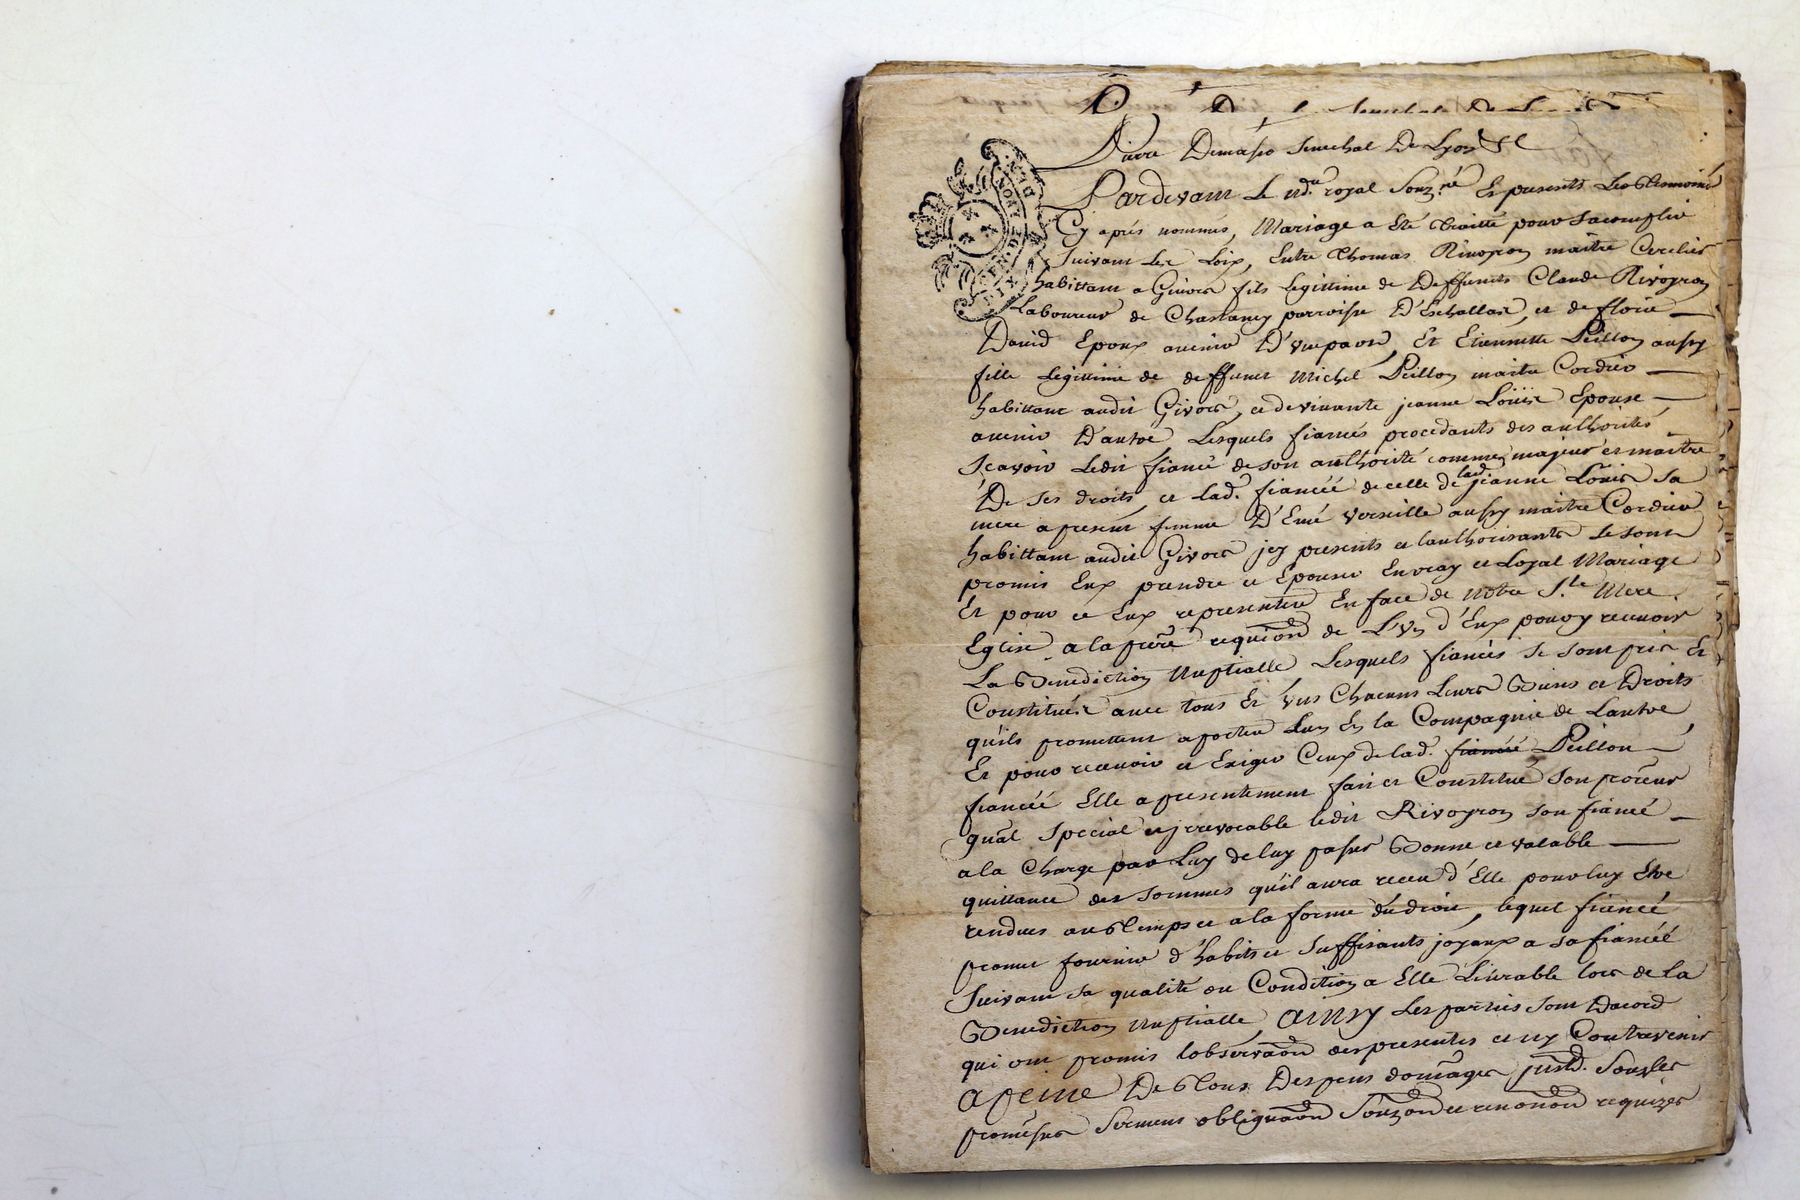 Pierre Demaso Senechal De Lyon
Pardevant Le royal Souz.né Et presents Les Temoins
Cy aprés nommés, Mariage a Eté Traitté pour Sacomplir
Suivant Les Loix, Entre Thomas Rivoyron maitre Cerclier
habittant a Givors fils Legittime de Deffunts Claude Rivoyron
Laboureur de Chassaney parroisse D'Eschallas, et de floric
David Epoux avenir D'unepart, Et Etiennette Peillon aussy
fille Legittime de deffunct Michel Peillon maitre Cordier
habittant audit Givors, et devivante jeanne Loüis Epouse
avenir D'autre Lesquels fiancés procedants des authorités
Sçavoir Ledit fiancé deson authorité comme majeur et maitre
De Ses droits, et Lad.e fiancéé decelle de lad. jeanne Loüis Sa
mere apresent femme D'Emé Verseille aussy maitre Cordier
habittant audit Givors jcy presents et lauthorisants Se sont
promis Eux prendre et Epouser Envray et Loyal Mariage
Et pour ce Eux representer En face de Notre S.te Mere
Eglise a la pere requion de L'Un d'Eux pour y recevoir
La Benediction Nuptialle Lesquels fiancés Se Sont pris Et
Constitués avec tous Et Uns Chacuns Leurs Biens et Droits
qu'ils promettent aporter Lun En la Compagnie de Lautre
Et pour recevoir et Exiger Ceux de lad. fiancéé Peillon
fiancéé Elle a presentement fait et Constitué Son proreur
gnal Special et jrrevocable ledit Rivoyron son fiancé
a la Charge par Luy deluy passer Bonne et valable
quittance des Sommes qu'il aura receu d'Elle pour luy Etre
rendues au Temps et a la forme du droit, lequel fiancé
promet fournir d'habits et Suffisants joyaux a Sa fiancéé
Suivant Sa qualité ou Condition a Elle Livrable lors de la
Benediction Nuptialle, ainsy Les parties Sont Dacord
qui ont promis lobservaon des presentes et ny Contrevenir
a peine De Tous Despens domages Souz les
promesses Serment obligaon Souzon et renonon requizes
SEN. DE LYON